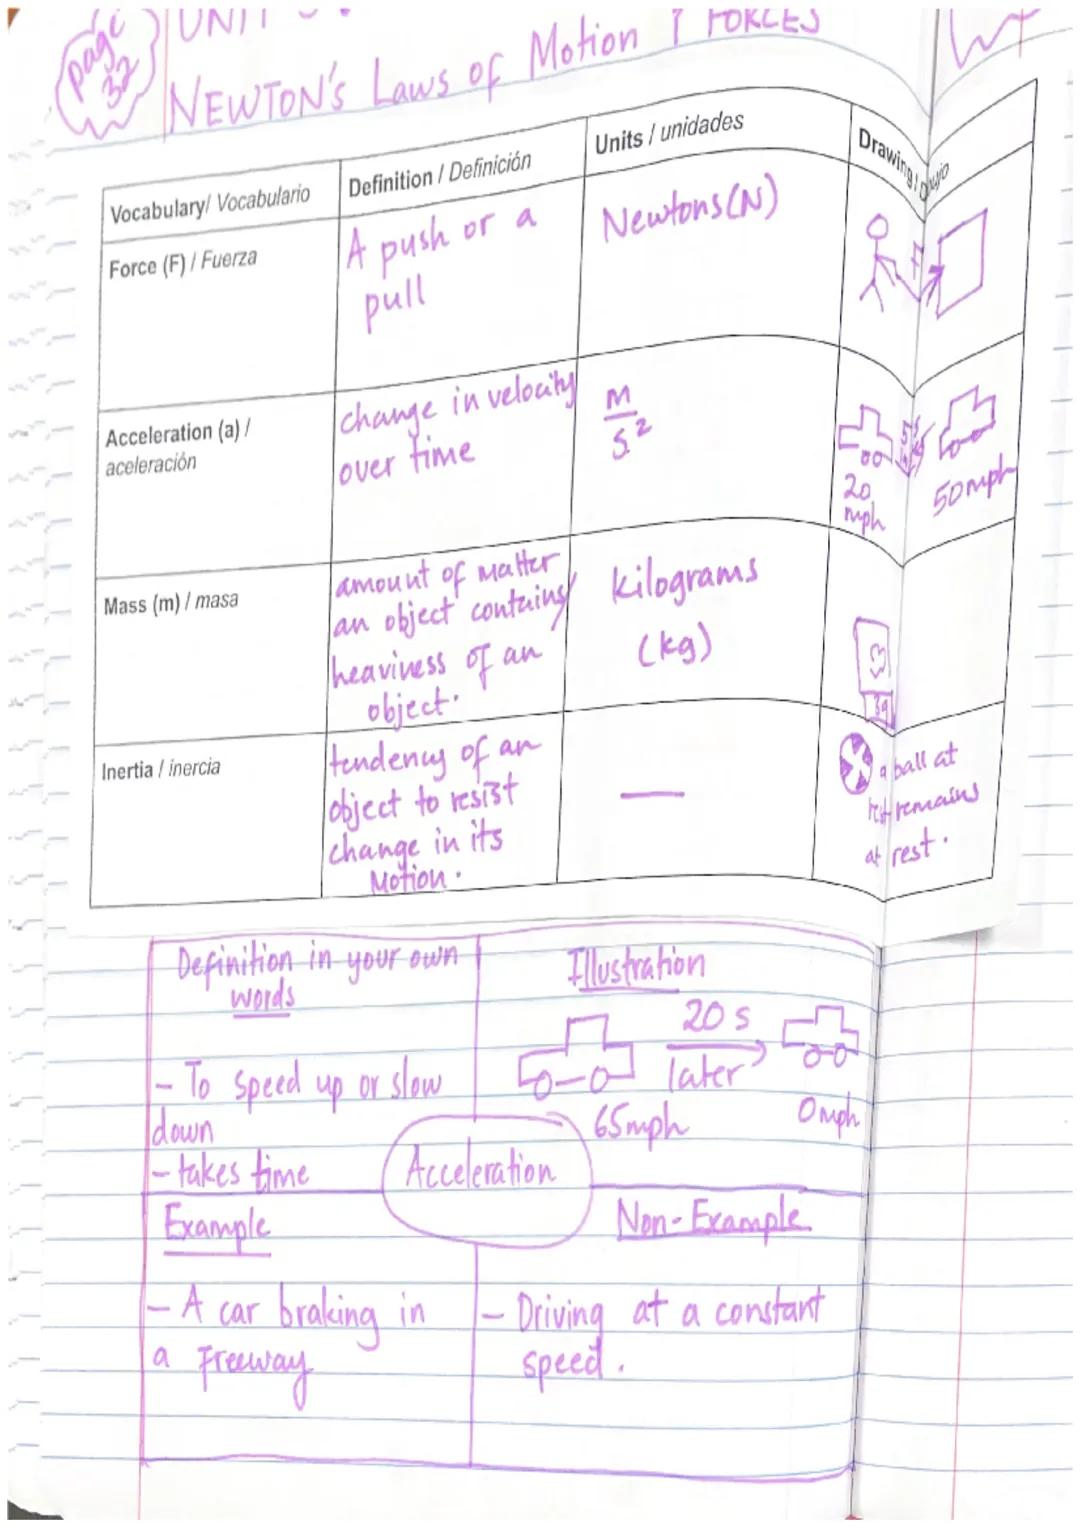 page
32
UNIT
NEWTON's Laws of Motion
FORCES
Vocabulary/ Vocabulario
Definition / Definición
Units / unidades
Drawing /
Force (F) / Fuerza
A push or a
pull
Newtons(N)
F
Acceleration (a) /
aceleración
change in velocity
over time
M
S²
20
mph
50mph
Mass (m) / masa
amount of matter
an object contains/
heaviness of an
object.
kilograms
(kg)
Inertia / inercia
tendency of an
object to resist
change in its
Motion.
—
a ball at
rest remains
at rest.
Definition in your own
words
- To speed up or slow
down
- takes time
Illustration
20 s
later
65mph
0mph
Acceleration
Example
- A car braking in
a Freeway
Non-Example
- Driving at a constant
speed.